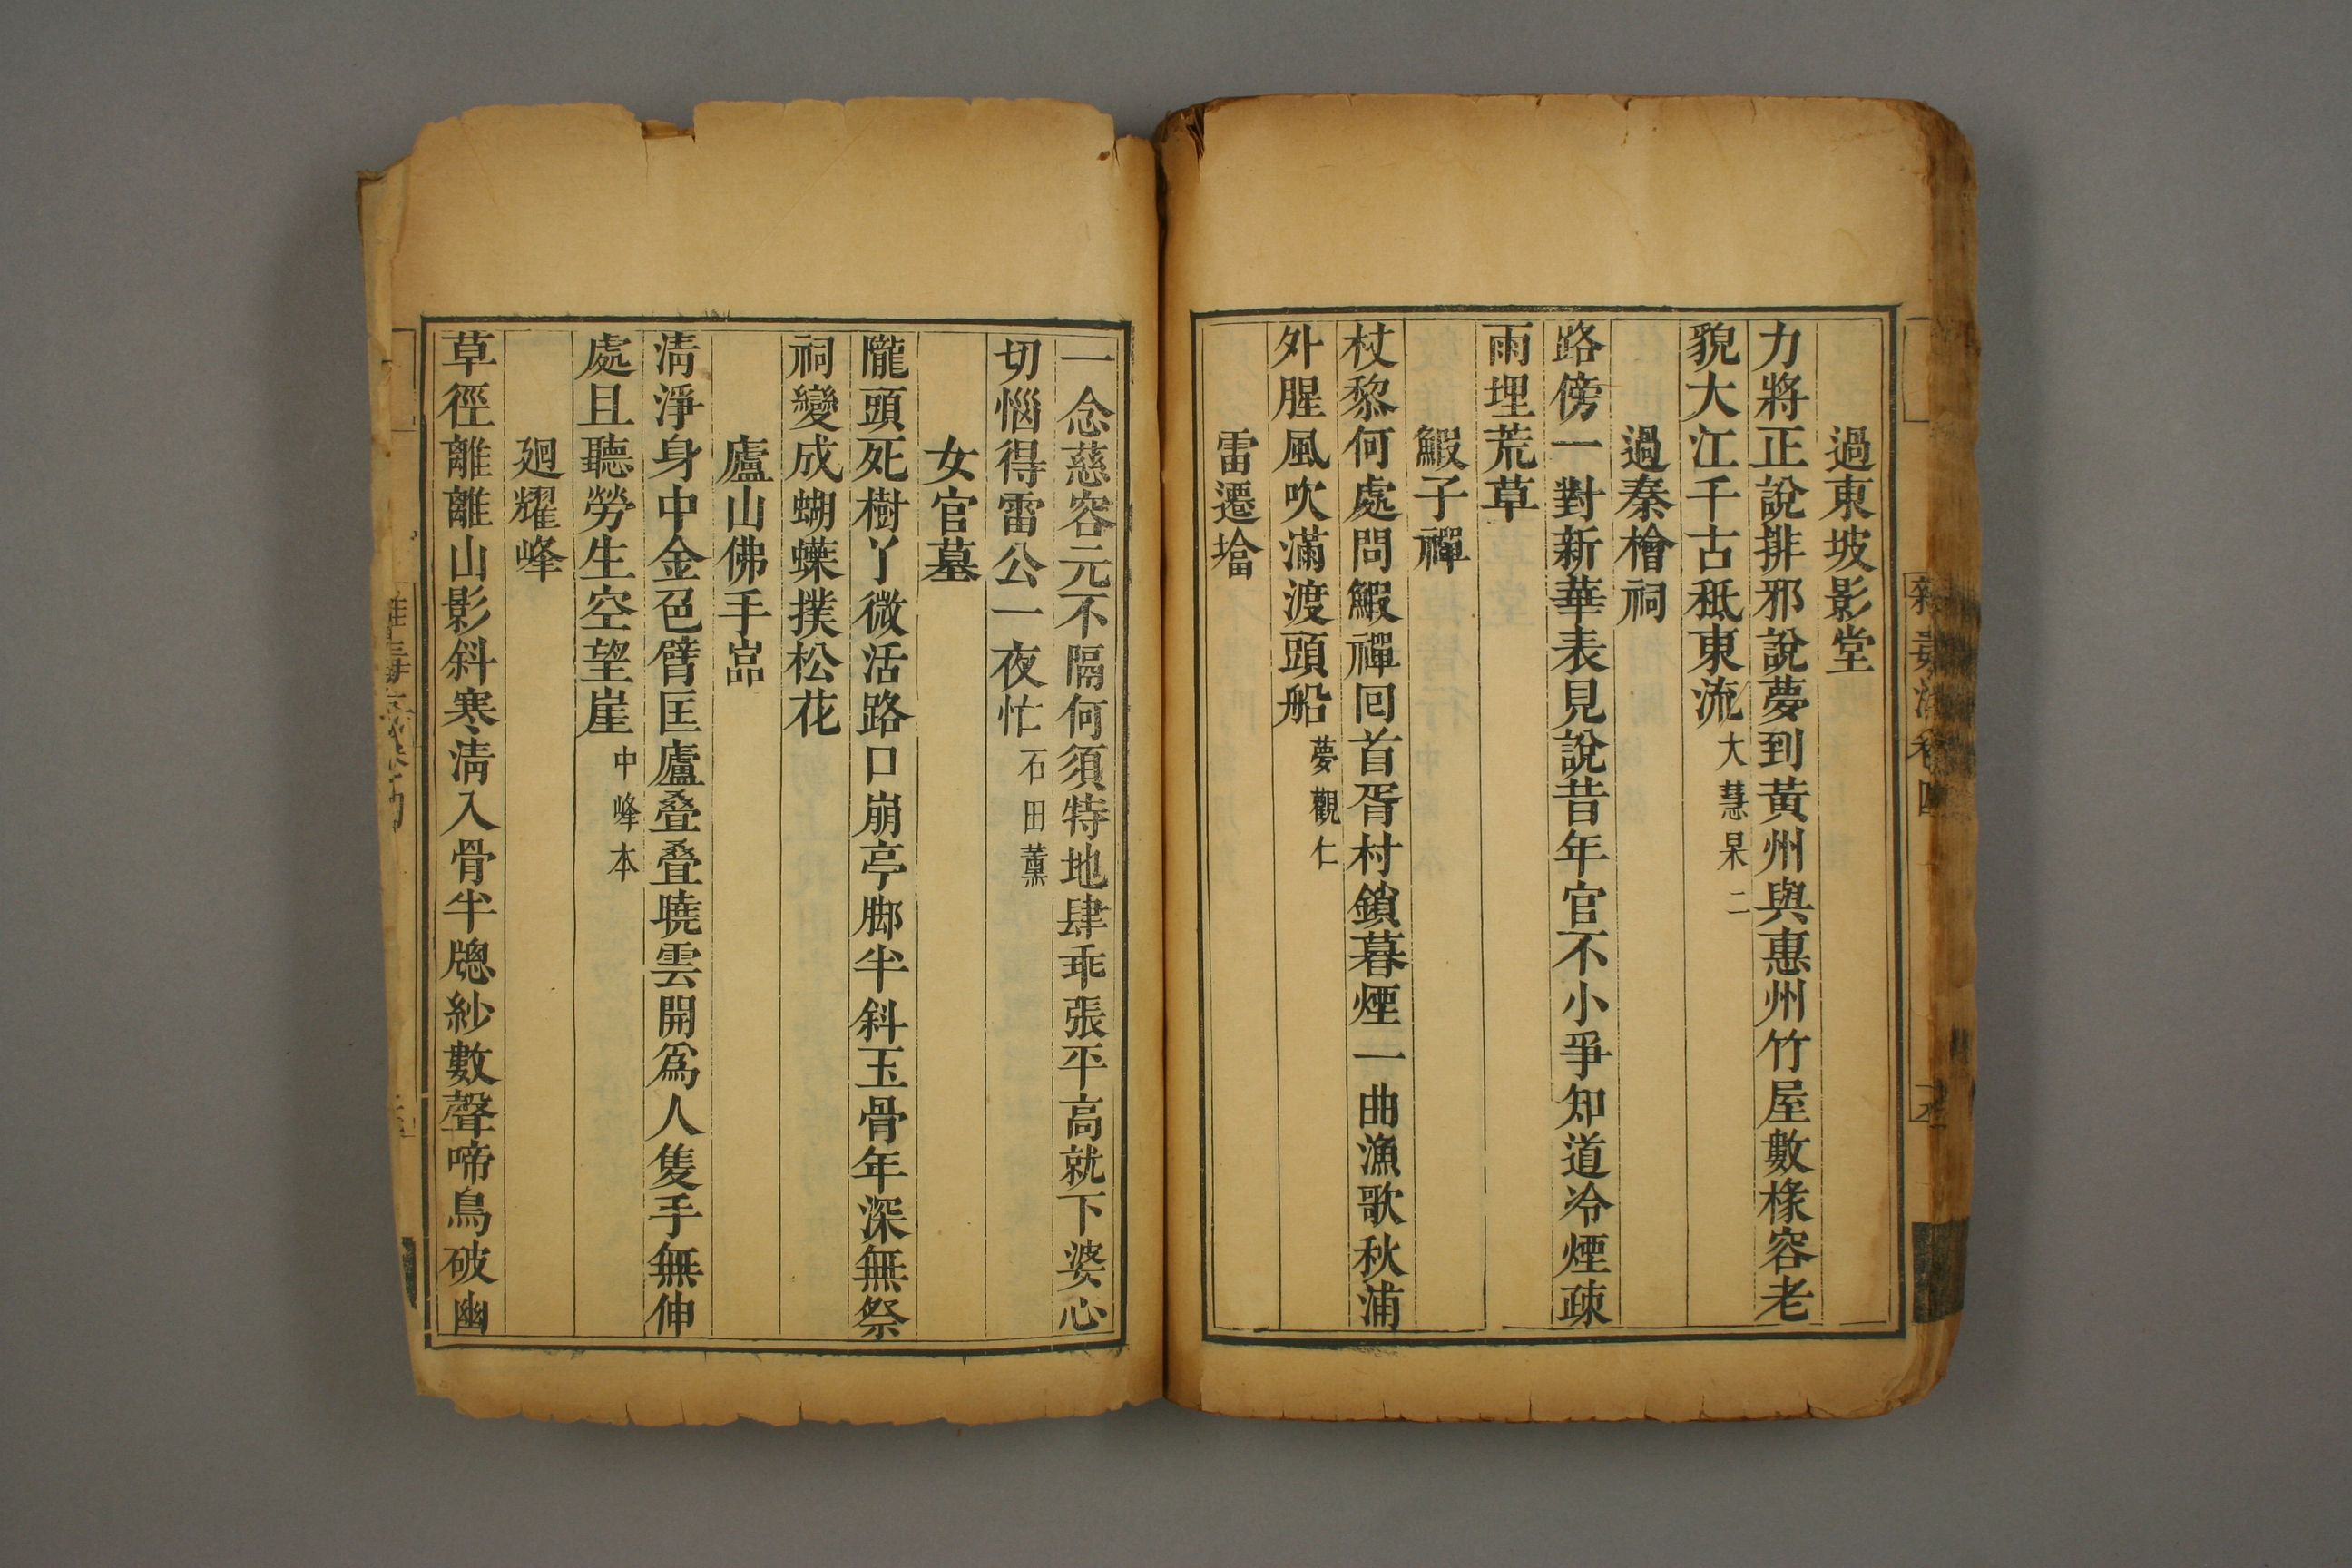 過東坡影堂
力將正說排邪說夢到黃州與惠州竹屋數椽容老
貌大江千古秪東流大慧杲二
過秦檜祠
路傍一對新華表見說昔年官不小爭知道冷煙疎
雨埋荒草
鰕子禪
杖黎何處問鰕禪回首胥村鎖暮煙一曲漁歌秋浦
外腥風吹滿渡頭船夢觀仁
雷遷墖
一念慈容元不隔何須特地肆乖張平高就下婆心
切惱得雷公一夜忙石田薰
女官墓
隴頭死樹丫微活路口崩亭脚半斜玉骨年深無祭
祠變成蝴蝶撲松花
廬山佛手嵓
淸淨身中金色臂匡廬叠叠曉雲開爲人隻手無伸
處且聽勞生空望崖中峰本
廻耀峰
草徑離離山影斜寒淸入骨半牕紗數聲啼鳥破幽